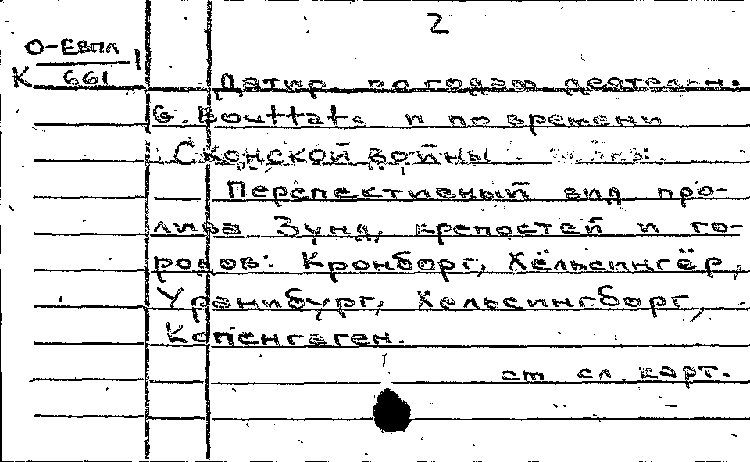 2
О-Евпл
К 661 1
Датир. по годам деятельн.
G. Bouttats и по времени
Сконской войны.
Перспективный вид про-
лива Зунд, крепостей и го-
родов: Кронборг, Хёльсингёр,
Уранибург, Хельсингборг,
Копенгаген.
см сл. карт.